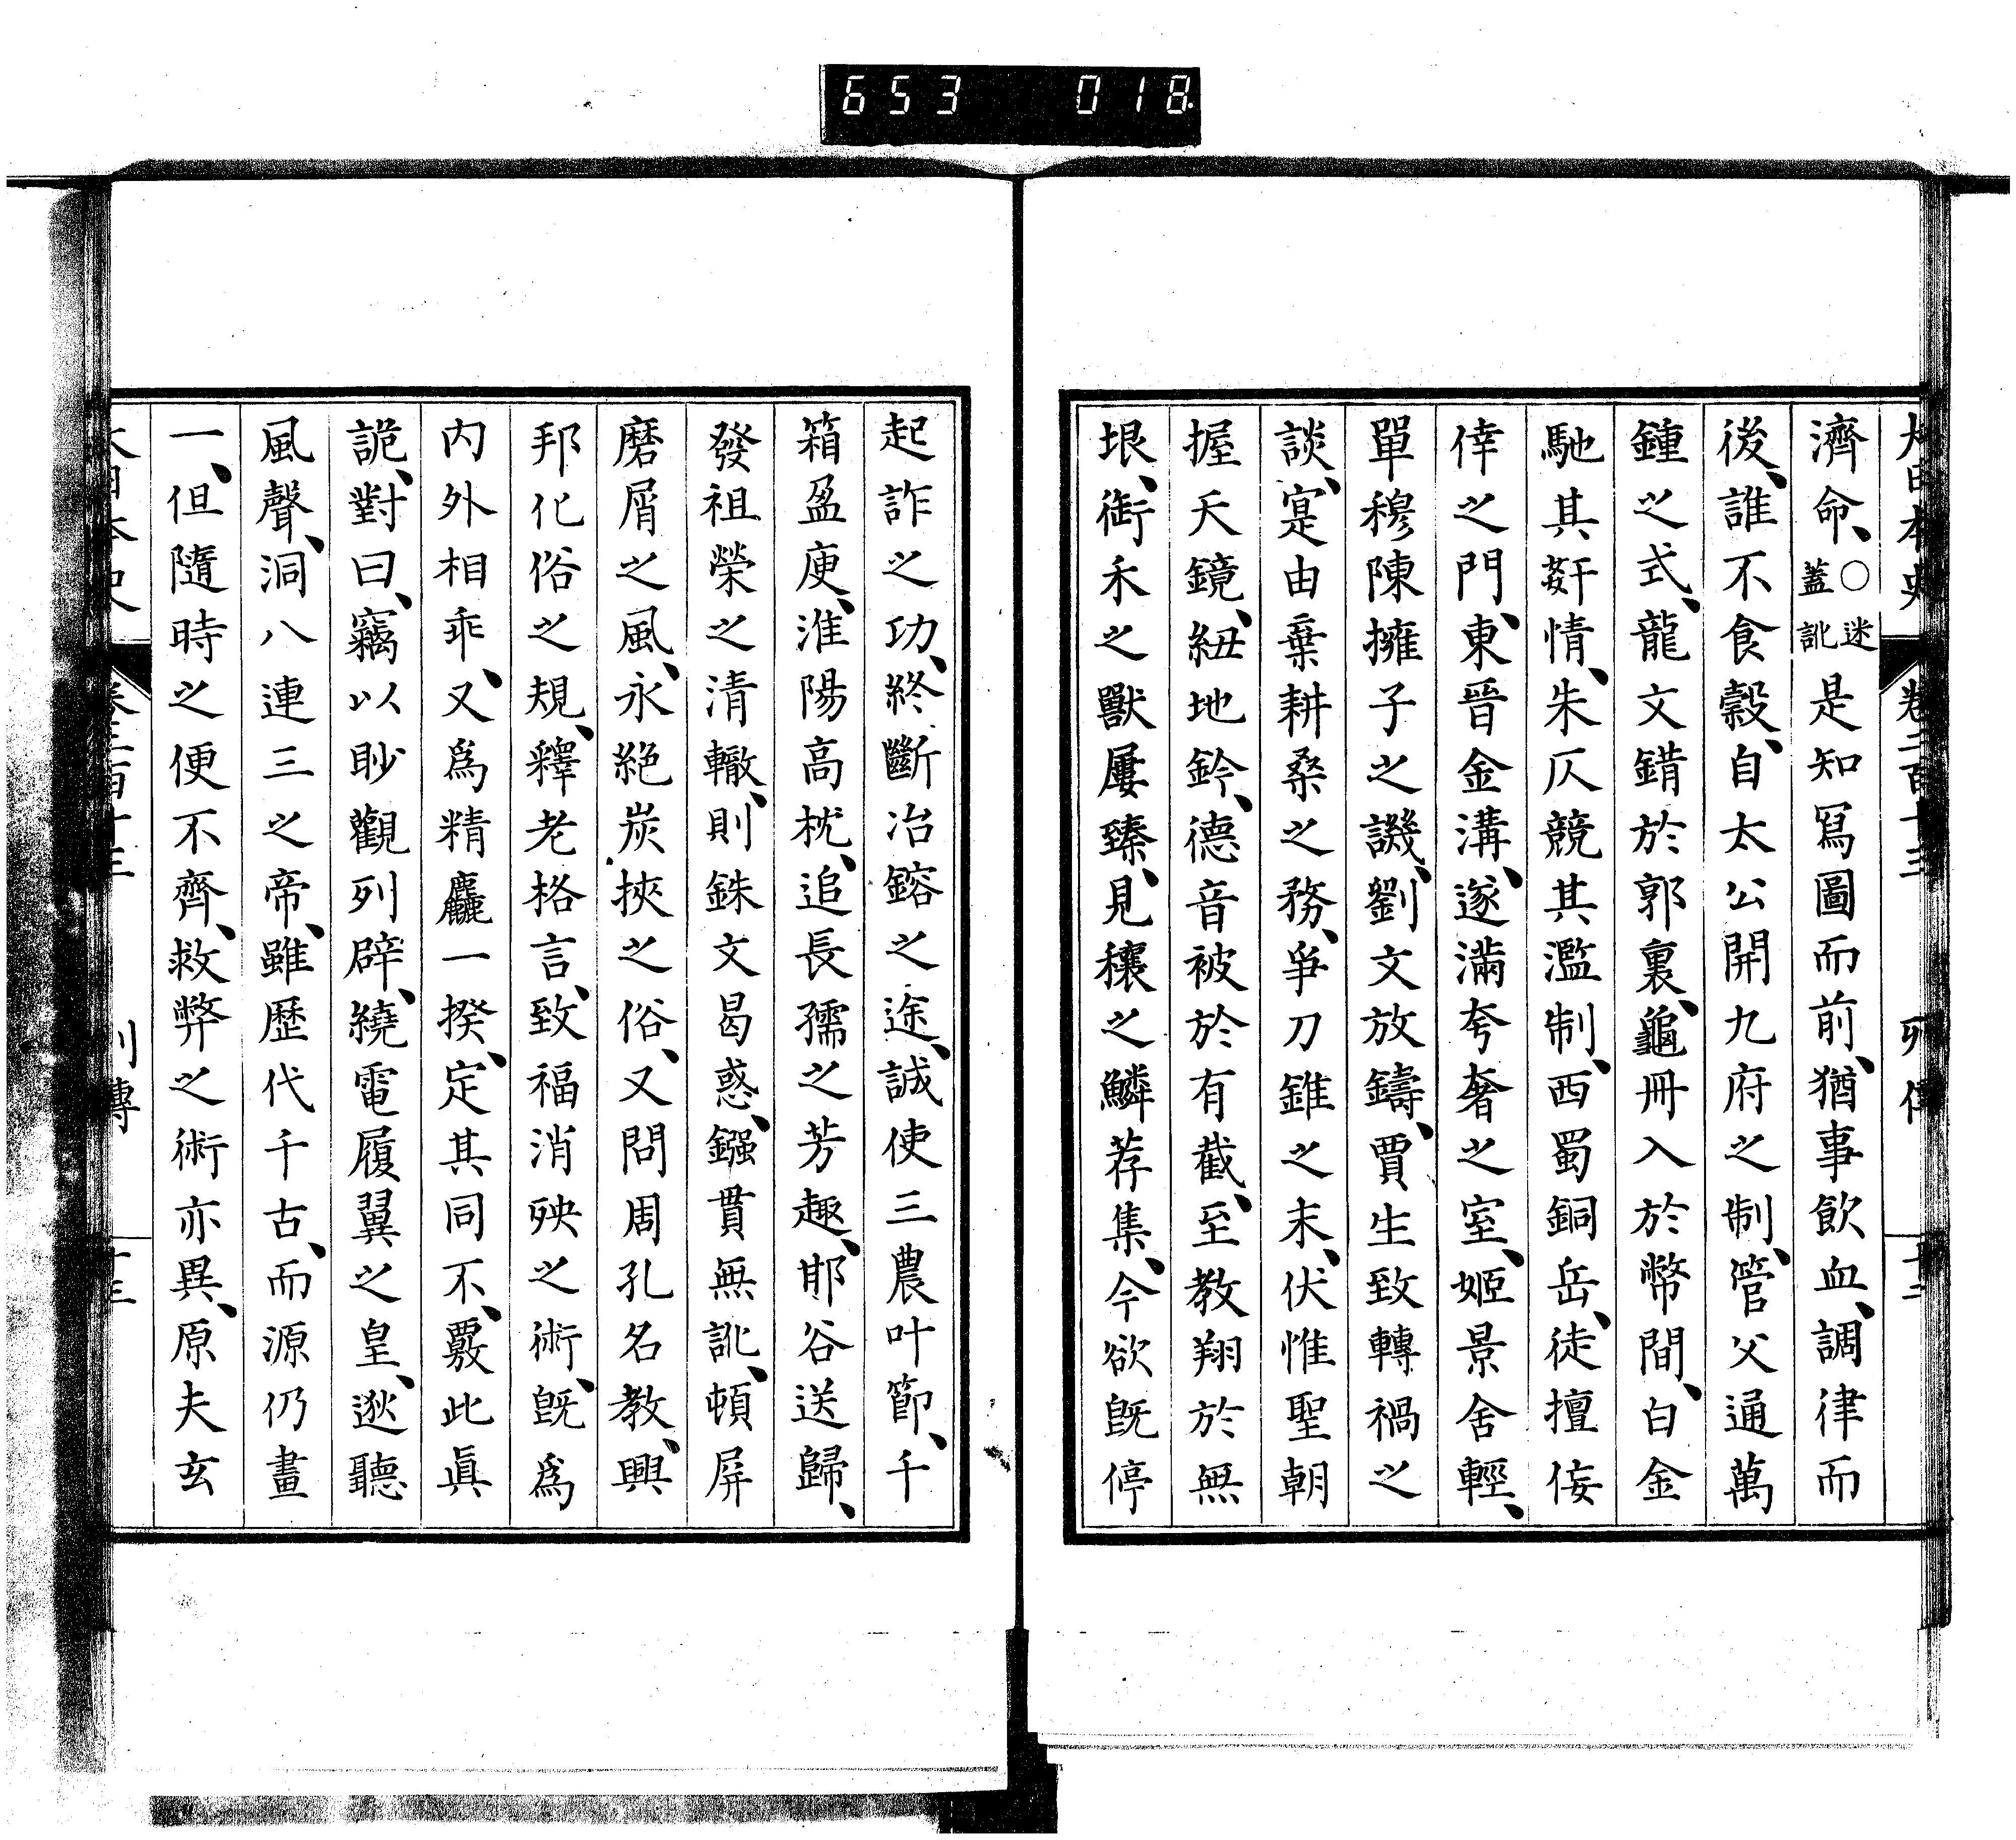 653 018
大日本史 卷二百十三 列傳 十二
濟命、○迷蓋訛是知冩圖而前、猶事飮血、調律而
後、誰不食穀、自太公開九府之制、管父通萬
鍾之式、龍文錯於郭裏、龜冊入於幣間、白金
馳其姧情、朱仄競其濫制、西蜀銅岳、徒擅侫
倖之門、東晉金溝、遂滿夸奢之室、姬景舍輕、
單穆陳擁子之譏、劉文放鑄、賈生致轉禍之
談、寔由棄耕桑之務、爭刀錐之末、伏惟聖朝
握天鏡、紐地鈐、德音被於有截、至教翔於無
垠、銜禾之獸屢臻、見穰之鱗荐集、今欲旣停
起詐之功、終斷冶鎔之途、誠使三農叶節、千
箱盈庾、淮陽高枕、追長孺之芳趣、耶谷送歸、
發祖榮之清轍、則銖文曷惑、鏹貫無訛、頓屏
磨屑之風、永絕炭挾之俗、又問周孔名教、興
邦化俗之規、釋老格言、致福消殃之術、旣爲
内外相乖、又爲精麤一揆、定其同不、覈此眞
詭、對曰、竊以眇觀列辟、繞電履翼之皇、逖聽
風聲、洞八連三之帝、雖歷代千古、而源仍畫
一、但隨時之便不齊、救弊之術亦異、原夫玄
大日本史 卷二百十三 列傳 十三